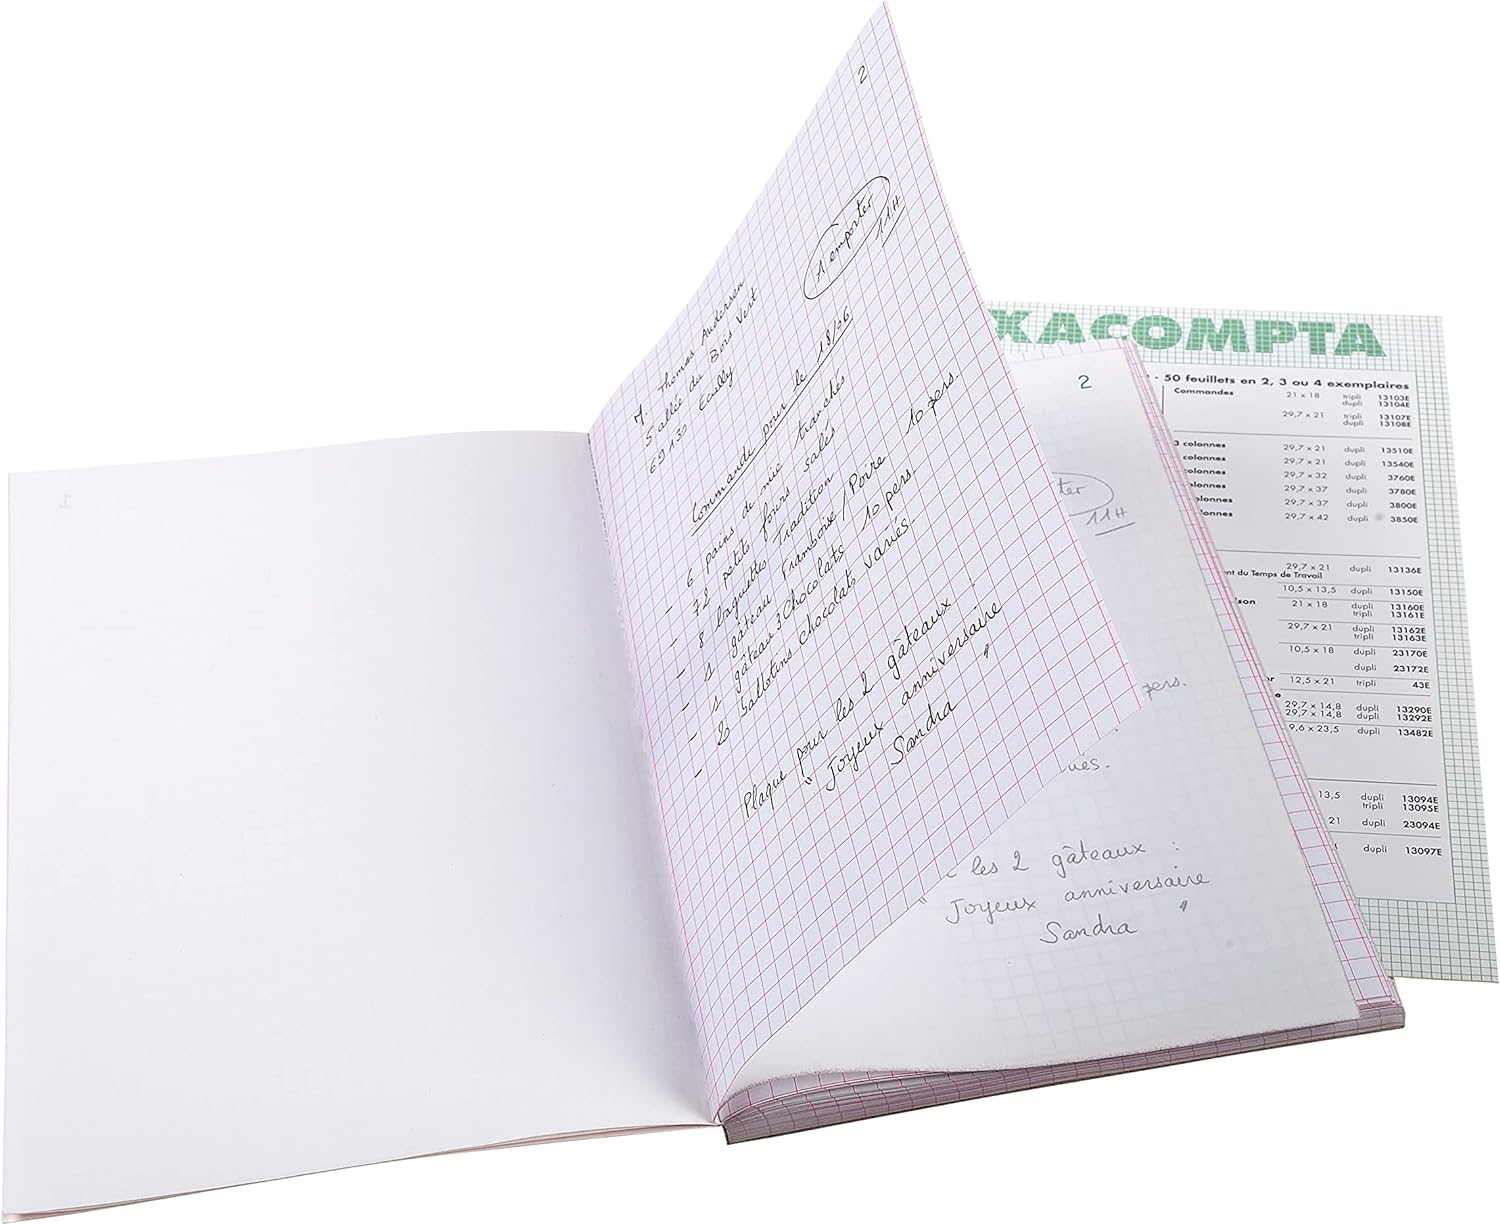 2
À emporter
11H
M Thomas Andersen
5 allée du Bois Vert
69130 Ecully
Commande pour le 18/06
- 6 pains de mie tranchés
- 72 petits fours salés
- 8 baguettes Tradition
- 1 gâteau Framboise/Poire 10 pers.
- 1 gâteau 3 Chocolats 10 pers.
- 2 ballotins chocolats variés.
Plaque pour les 2 gâteaux :
" Joyeux anniversaire
Sandra "
1
2
ter
11H
pers.
ués.
les 2 gâteaux :
" Joyeux anniversaire
Sandra "
XACOMPTA
- 50 feuillets en 2, 3 ou 4 exemplaires
Commandes 21 x 18 tripli 13103E
dupli 13104E
29,7 x 21 tripli 13107E
dupli 13108E
3 colonnes 29,7 x 21 dupli 13510E
colonnes 29,7 x 21 dupli 13540E
colonnes 29,7 x 32 dupli 3760E
colonnes 29,7 x 37 dupli 3780E
colonnes 29,7 x 37 dupli 3800E
olonnes 29,7 x 42 dupli 3850E
29,7 x 21 dupli 13136E
nt du Temps de Travail
10,5 x 13,5 dupli 13150E
ison 21 x 18 dupli 13160E
tripli 13161E
29,7 x 21 dupli 13162E
tripli 13163E
10,5 x 18 dupli 23170E
dupli 23172E
er 12,5 x 21 tripli 43E
e
29,7 x 14,8 dupli 13290E
29,7 x 14,8 dupli 13292E
9,6 x 23,5 dupli 13482E
13,5 dupli 13094E
tripli 13095E
21 dupli 23094E
dupli 13097E